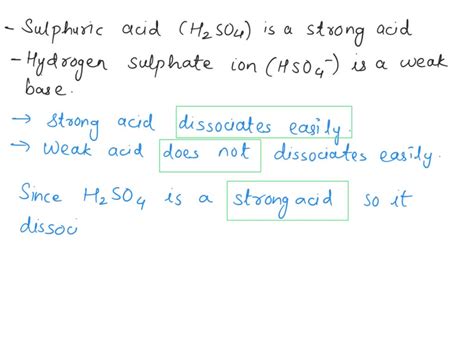 - Sulphuric acid (H₂SO₄) is a strong acid
- Hydrogen sulphate ion (HSO₄⁻) is a weak
base.
→ Strong acid dissociates easily.
→ Weak acid does not dissociates easily.
Since H₂SO₄ is a strong acid so it
dissoci